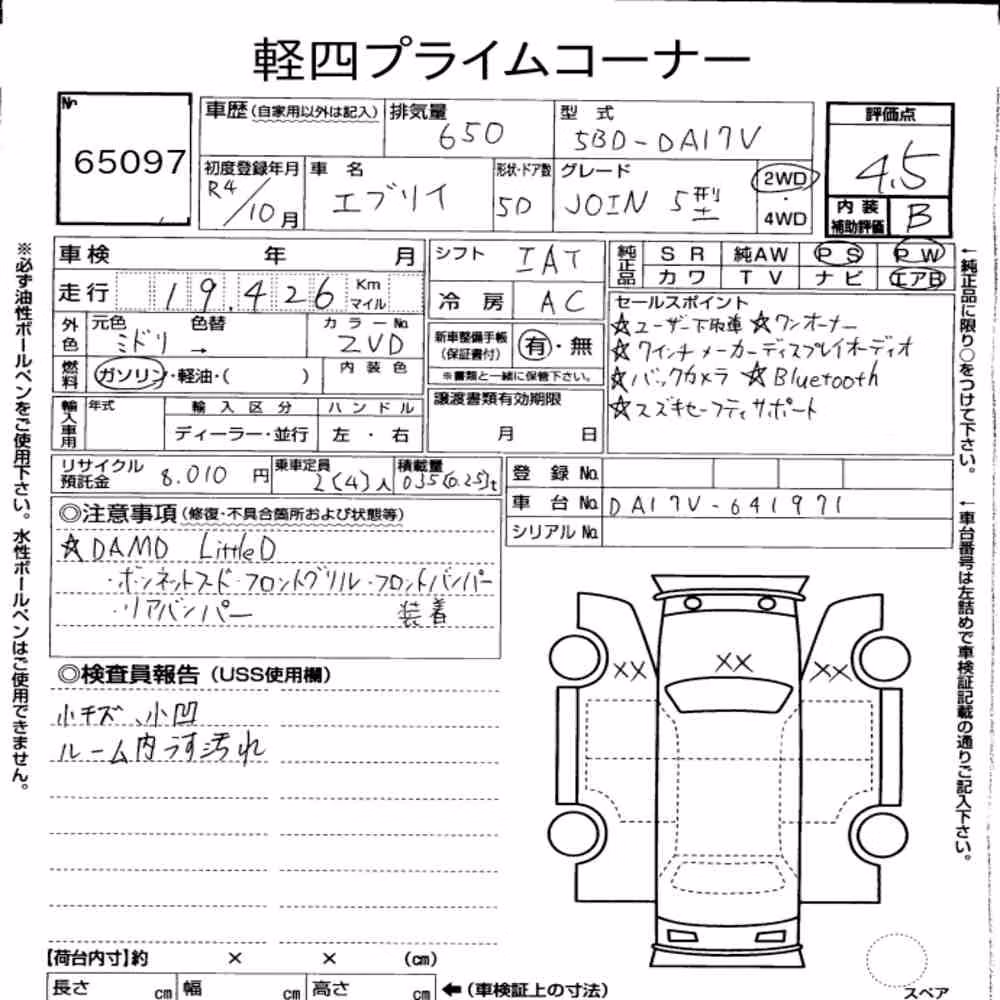 軽四プライムコーナー
No 65097
車歴(自家用以外は記入) 排気量 650 型式 5BD-DA17V 評価点 4.5
初度登録年月 R4/10月 車名 エブリイ 形状・ドア数 5D グレード JOIN 5型 2WD・4WD 内装補助評価 B
車検 年 月 シフト IAT 純正品 SR 純AW PS PW
カワ TV ナビ エアB
走行 19.426 Km マイル 冷房 AC
外色 元色 ミドリ 色替 → カラーNo. ZVD 新車整備手帳(保証書付) 有・無
※書類と一緒に保管下さい。
燃料 ガソリン・軽油・( ) 内装色
セールスポイント
☆ユーザー下取車 ☆ワンオーナー
☆7インチメーカーディスプレイオーディオ
☆バックカメラ ☆Bluetooth
☆スズキセーフティサポート
輸入車用 年式 輸入区分 ディーラー・並行 ハンドル 左・右 譲渡書類有効期限 月 日
リサイクル預託金 8.010円 乗車定員 2(4)人 積載量 035(0.25)t
登録No.
車台No. DA17V-641971
シリアルNo.
◎注意事項(修復・不具合箇所および状態等)
☆DAMD LittleD
・ボンネットフード・フロントグリル・フロントバンパー
・リアバンパー 装着
◎検査員報告(USS使用欄)
小キズ、小凹
ルーム内うす汚れ
XX XX XX
【荷台内寸】約 × × (cm)
長さ cm 幅 cm 高さ cm ←(車検証上の寸法)
スペア
※必ず油性ボールペンをご使用下さい。水性ボールペンはご使用できません。
←純正品に限り○をつけて下さい。
←車台番号は左詰めで車検証記載の通りご記入下さい。